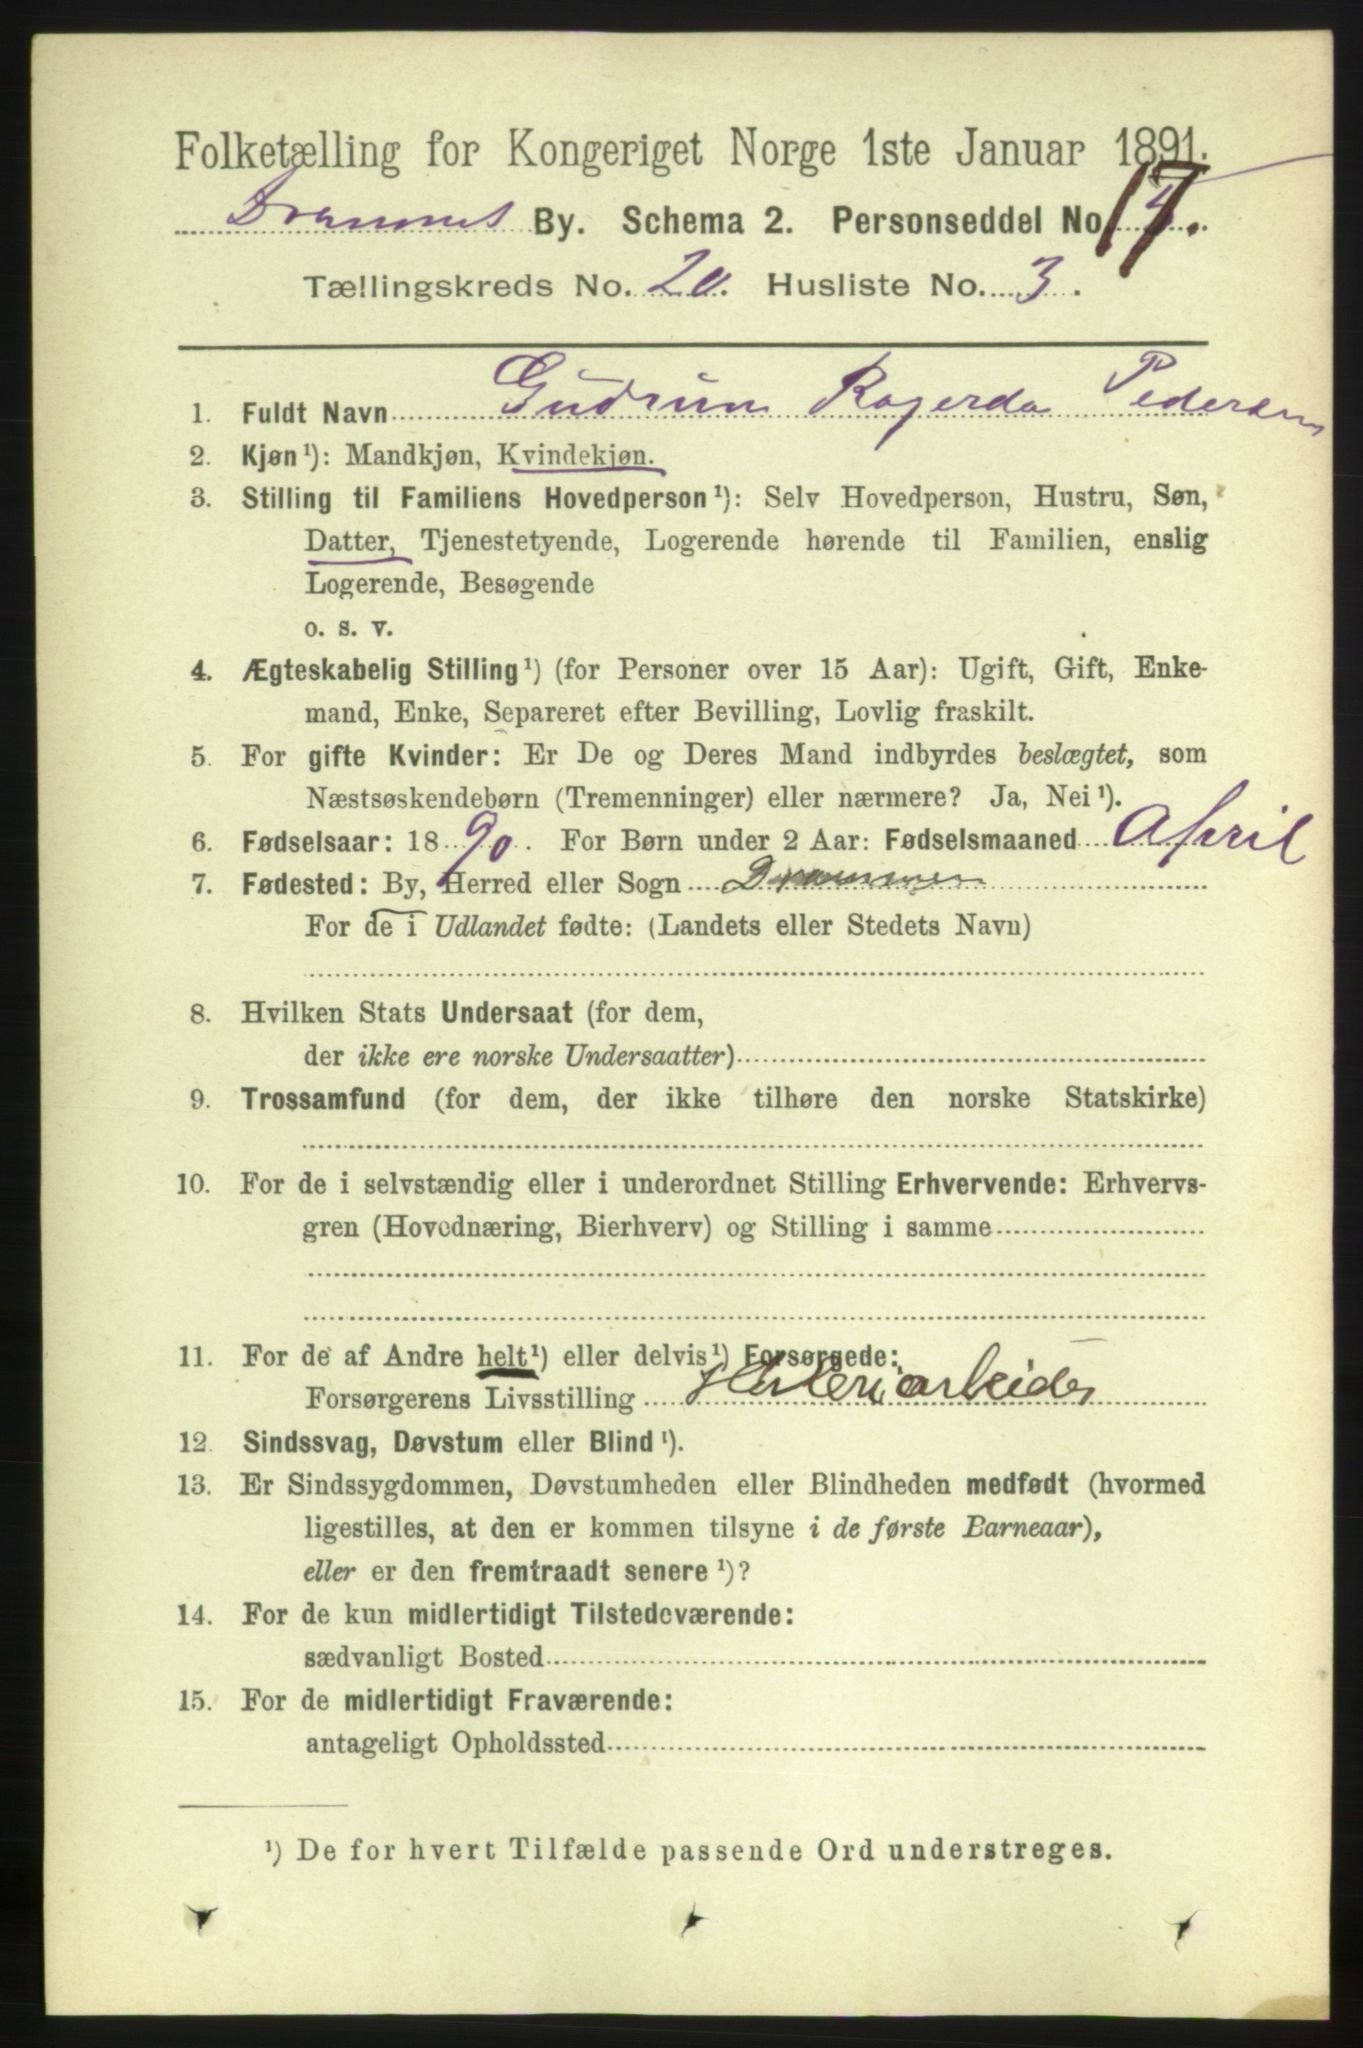 Folketælling for Kongeriget Norge 1ste Januar 1891.
Drammens By. Schema 2. Personseddel No. 17.
Tællingskreds No. 20. Husliste No. 3.
1. Fuldt Navn Gudrun Ragerda Pedersen
2. Kjøn ¹): Mandkjøn, Kvindekjøn.
3. Stilling til Familiens Hovedperson ¹): Selv Hovedperson, Hustru, Søn,
Datter, Tjenestetyende, Logerende hørende til Familien, enslig
Logerende, Besøgende
o. s. v.
4. Ægteskabelig Stilling ¹) (for Personer over 15 Aar): Ugift, Gift, Enke-
mand, Enke, Separeret efter Bevilling, Lovlig fraskilt.
5. For gifte Kvinder: Er De og Deres Mand indbyrdes beslægtet, som
Næstsøskendebørn (Tremenninger) eller nærmere? Ja, Nei ¹).
6. Fødselsaar: 1890. For Børn under 2 Aar: Fødselsmaaned April
7. Fødested: By, Herred eller Sogn Drammen
For de i Udlandet fødte: (Landets eller Stedets Navn)
8. Hvilken Stats Undersaat (for dem,
der ikke ere norske Undersaatter)
9. Trossamfund (for dem, der ikke tilhøre den norske Statskirke)
10. For de i selvstændig eller i underordnet Stilling Erhvervende: Erhvervs-
gren (Hovednæring, Bierhverv) og Stilling i samme
11. For de af Andre helt ¹) eller delvis ¹) Forsørgede:
Forsørgerens Livsstilling
12. Sindssvag, Døvstum eller Blind ¹).
13. Er Sindssygdommen, Døvstumheden eller Blindheden medfødt (hvormed
ligestilles, at den er kommen tilsyne i de første Barneaar),
eller er den fremtraadt senere ¹)?
14. For de kun midlertidigt Tilstedeværende:
sædvanligt Bosted
15. For de midlertidigt Fraværende:
antageligt Opholdssted
¹) De for hvert Tilfælde passende Ord understreges.